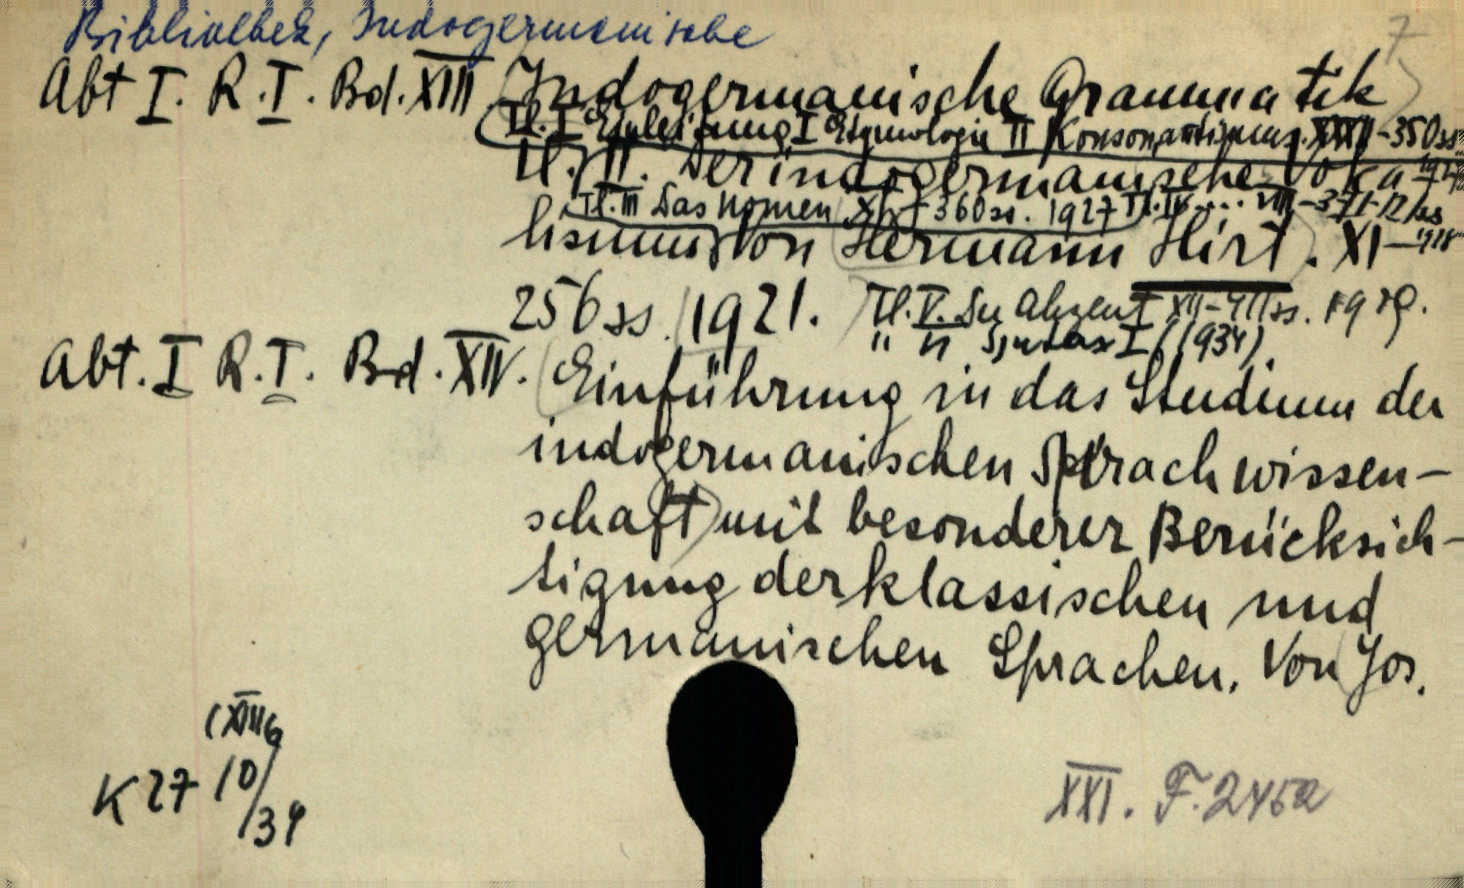 Bibliothek, Indogermanische
7
Abt I. R.I. Bd. XIII Indogermanische Grammatik
Tl. I Einleitung I Etymologie II Konsonantismus. -350ss
Tl. II. Der indogermanische Voka-
Tl. III Das Nomen XI + 360ss. 1927 Tl. IV.... VIII-371-12/ss
lismus von Hermann Hirt. XI-
256 ss. 1921. Tl. V. Der Akzent XII-411ss. 1929.
" VI Syntax I (1934)
Abt. I R.I. Bd. XIV. Einführung in das Studium der
indogermanischen Sprachwissen-
schaft mit besonderer Berücksich-
tigung der klassischen und
germanischen Sprachen. Von Jos.
(XIII6
K 27 10/39
XXI. F. 245a